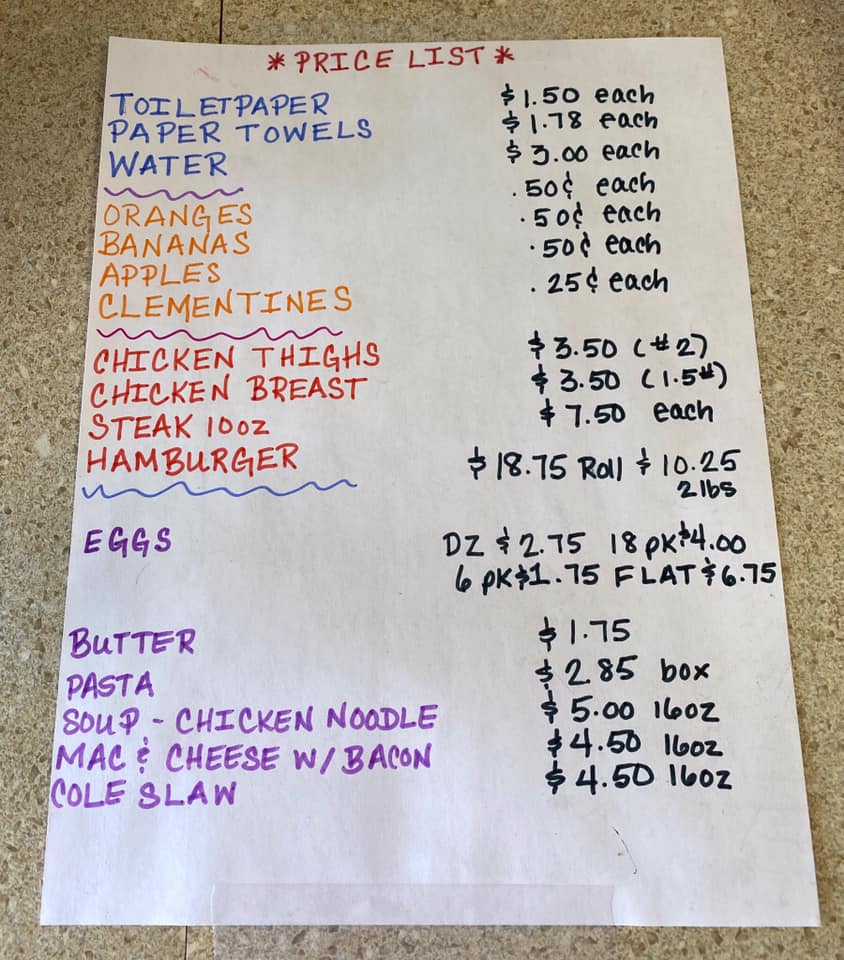 * PRICE LIST *
TOILETPAPER $1.50 each
PAPER TOWELS $1.78 each
WATER $3.00 each
ORANGES .50¢ each
BANANAS .50¢ each
APPLES .50¢ each
CLEMENTINES .25¢ each
CHICKEN THIGHS $3.50 (#2)
CHICKEN BREAST $3.50 (1.5#)
STEAK 10oz $7.50 each
HAMBURGER $18.75 Roll $10.25
2lbs
EGGS DZ $2.75 18 pK $4.00
6 pK $1.75 FLAT $6.75
BUTTER $1.75
PASTA $2.85 box
SOUP - CHICKEN NOODLE $5.00 16oz
MAC & CHEESE W/ BACON $4.50 16oz
COLE SLAW $4.50 16oz